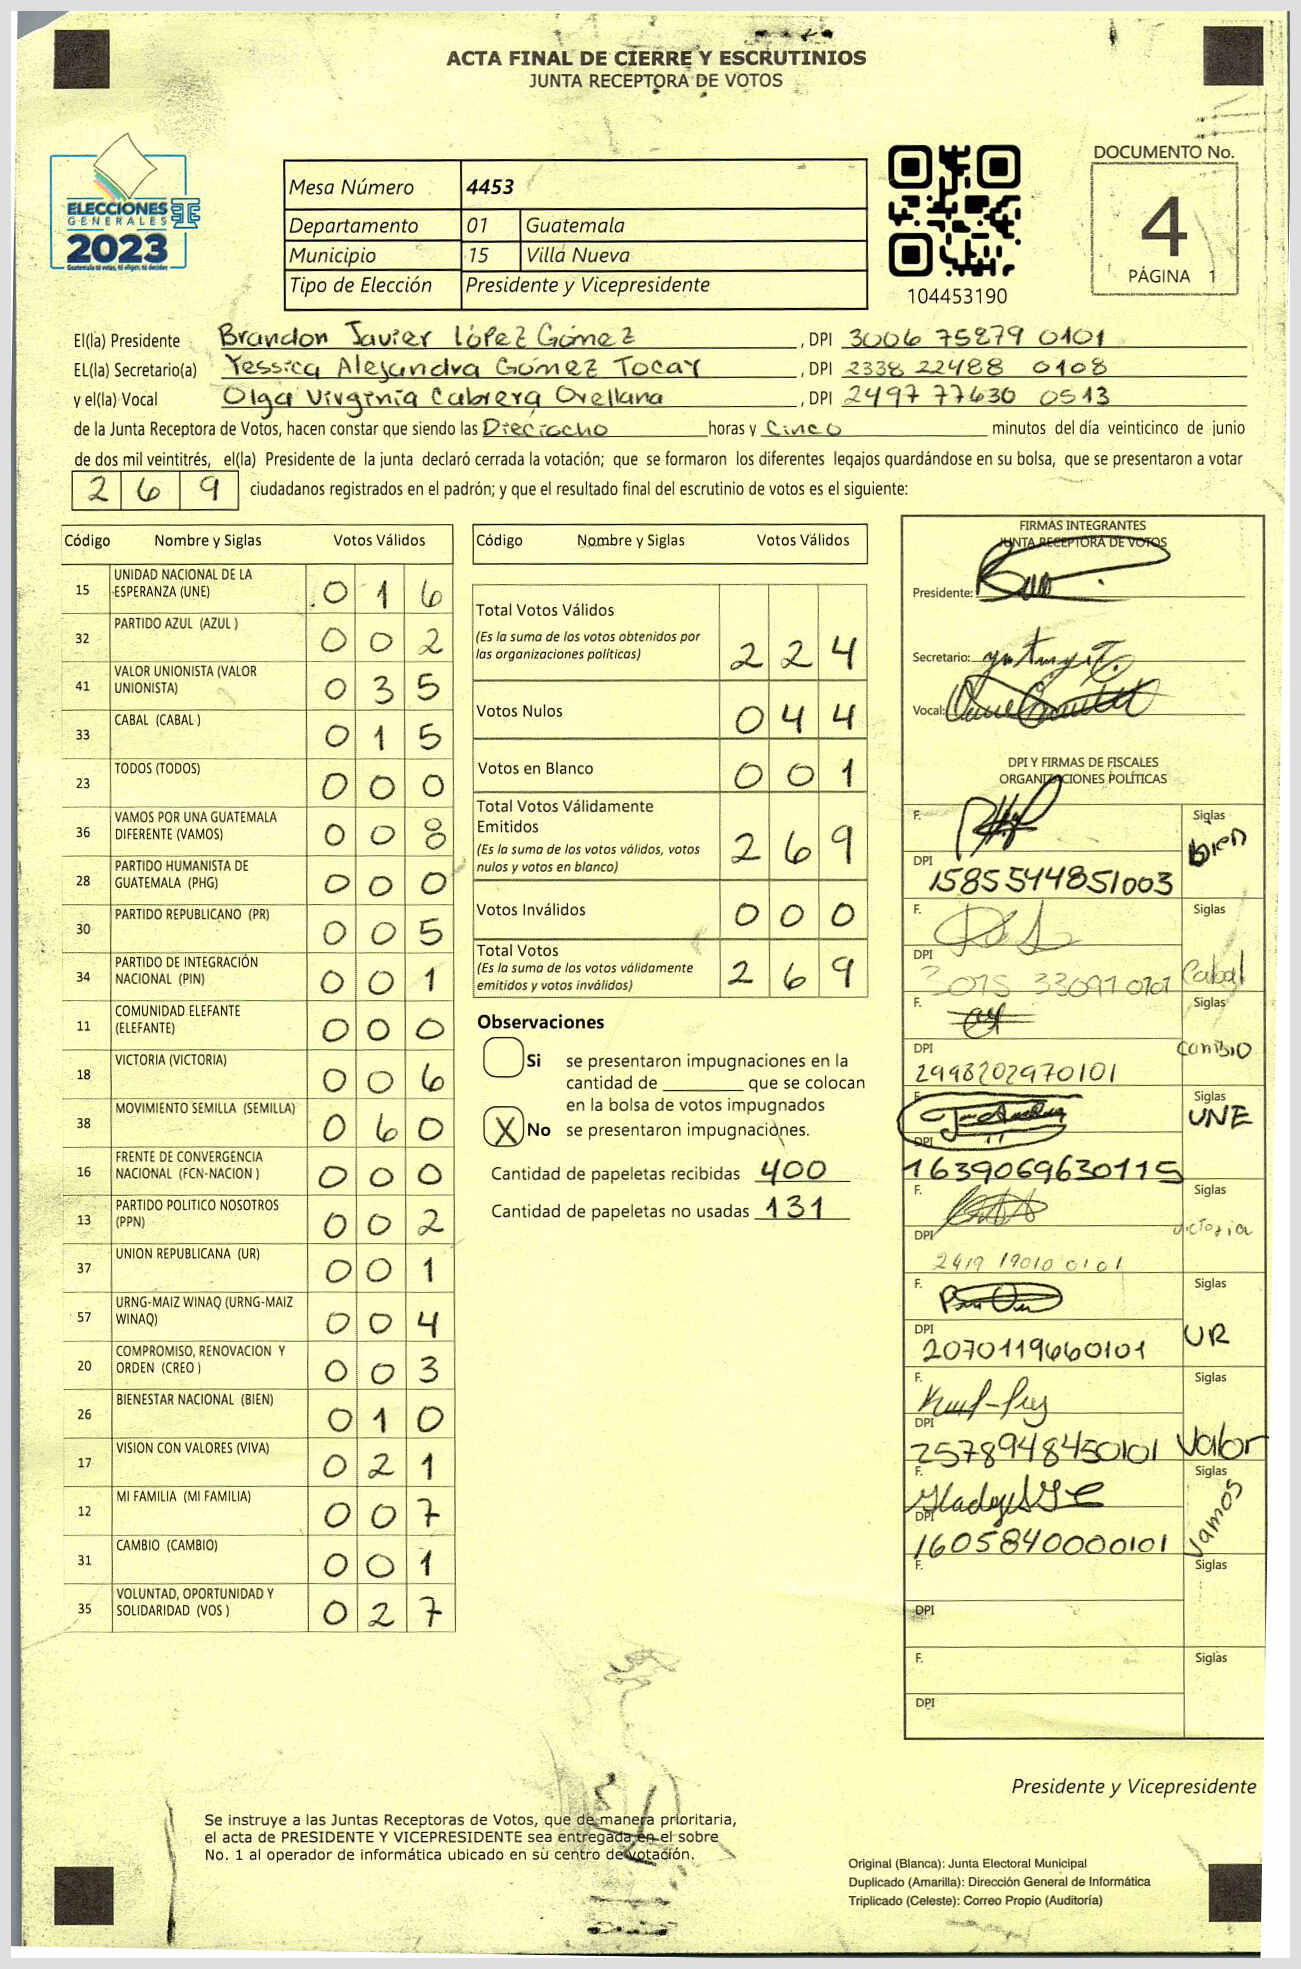 ACTA FINAL DE CIERRE Y ESCRUTINIOS
JUNTA RECEPTORA DE VOTOS
ELECCIONES
GENERALES
2023
Guatemala tú votas, tú eliges, tú decides
Mesa Número 4453
Departamento 01 Guatemala
Municipio 15 Villa Nueva
Tipo de Elección Presidente y Vicepresidente
104453190
DOCUMENTO No.
4
PÁGINA 1
El(la) Presidente Brandon Javier López Gómez , DPI 3006 75879 0101
EL(la) Secretario(a) Yessica Alejandra Gómez Tocay , DPI 2338 22488 0108
y el(la) Vocal Olga Virginia Cabrera Orellana , DPI 2497 77630 0513
de la Junta Receptora de Votos, hacen constar que siendo las Dieciocho horas y Cinco minutos del día veinticinco de junio
de dos mil veintitrés, el(la) Presidente de la junta declaró cerrada la votación; que se formaron los diferentes legajos guardándose en su bolsa, que se presentaron a votar
2 6 9 ciudadanos registrados en el padrón; y que el resultado final del escrutinio de votos es el siguiente:
Código Nombre y Siglas Votos Válidos
15 UNIDAD NACIONAL DE LA ESPERANZA (UNE) 0 1 6
32 PARTIDO AZUL (AZUL ) 0 0 2
41 VALOR UNIONISTA (VALOR UNIONISTA) 0 3 5
33 CABAL (CABAL ) 0 1 5
23 TODOS (TODOS) 0 0 0
36 VAMOS POR UNA GUATEMALA DIFERENTE (VAMOS) 0 0 8
28 PARTIDO HUMANISTA DE GUATEMALA (PHG) 0 0 0
30 PARTIDO REPUBLICANO (PR) 0 0 5
34 PARTIDO DE INTEGRACIÓN NACIONAL (PIN) 0 0 1
11 COMUNIDAD ELEFANTE (ELEFANTE) 0 0 0
18 VICTORIA (VICTORIA) 0 0 6
38 MOVIMIENTO SEMILLA (SEMILLA) 0 6 0
16 FRENTE DE CONVERGENCIA NACIONAL (FCN-NACION ) 0 0 0
13 PARTIDO POLITICO NOSOTROS (PPN) 0 0 2
37 UNION REPUBLICANA (UR) 0 0 1
57 URNG-MAIZ WINAQ (URNG-MAIZ WINAQ) 0 0 4
20 COMPROMISO, RENOVACION Y ORDEN (CREO ) 0 0 3
26 BIENESTAR NACIONAL (BIEN) 0 1 0
17 VISION CON VALORES (VIVA) 0 2 1
12 MI FAMILIA (MI FAMILIA) 0 0 7
31 CAMBIO (CAMBIO) 0 0 1
35 VOLUNTAD, OPORTUNIDAD Y SOLIDARIDAD (VOS ) 0 2 7
Código Nombre y Siglas Votos Válidos
Total Votos Válidos
(Es la suma de los votos obtenidos por las organizaciones políticas) 2 2 4
Votos Nulos 0 4 4
Votos en Blanco 0 0 1
Total Votos Válidamente Emitidos
(Es la suma de los votos válidos, votos nulos y votos en blanco) 2 6 9
Votos Inválidos 0 0 0
Total Votos
(Es la suma de los votos válidamente emitidos y votos inválidos) 2 6 9
Observaciones
Si se presentaron impugnaciones en la
cantidad de ________ que se colocan
en la bolsa de votos impugnados
X No se presentaron impugnaciones.
Cantidad de papeletas recibidas 400
Cantidad de papeletas no usadas 131
FIRMAS INTEGRANTES
JUNTA RECEPTORA DE VOTOS
Presidente:
Secretario:
Vocal:
DPI Y FIRMAS DE FISCALES
ORGANIZACIONES POLÍTICAS
F. Siglas bien
DPI 1585544851003
F. Siglas Cabal
DPI 3015 33091 0101
F. Siglas cambio
DPI 2998202970101
F. Siglas UNE
DPI 1639069630115
F. Siglas victoria
DPI 2419 19010 0101
F. Siglas UR
DPI 2070119660101
F. Siglas Valor
DPI 2578948450101
F. Siglas Vamos
DPI 1605840000101
F. Siglas
DPI
F. Siglas
DPI
Presidente y Vicepresidente
Se instruye a las Juntas Receptoras de Votos, que de manera prioritaria,
el acta de PRESIDENTE Y VICEPRESIDENTE sea entregada en el sobre
No. 1 al operador de informática ubicado en su centro de votación.
Original (Blanca): Junta Electoral Municipal
Duplicado (Amarilla): Dirección General de Informática
Triplicado (Celeste): Correo Propio (Auditoría)